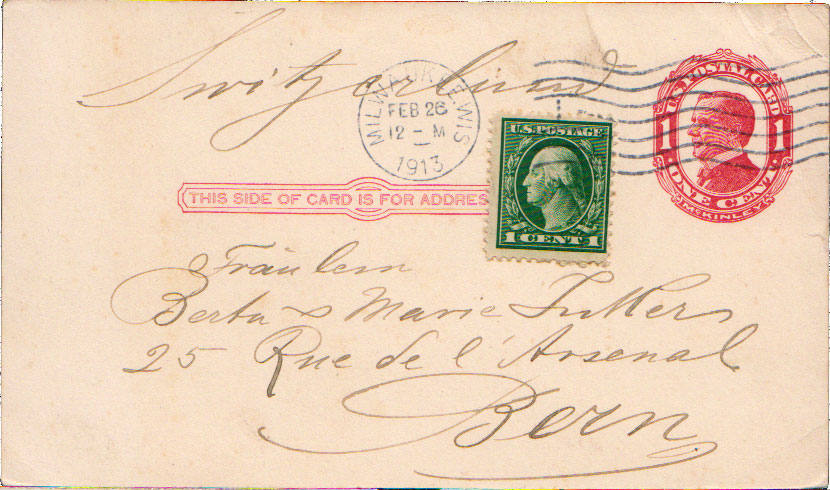 Switzerland
MILWAUKEE WIS
FEB 26
12-M
1913
U.S. POSTAL CARD
1 1
ONE CENT
McKINLEY
U.S. POSTAGE
1 CENT 1
THIS SIDE OF CARD IS FOR ADDRES
Fräulein
Berta & Marie
25 Rue de l'Arsenal
Bern